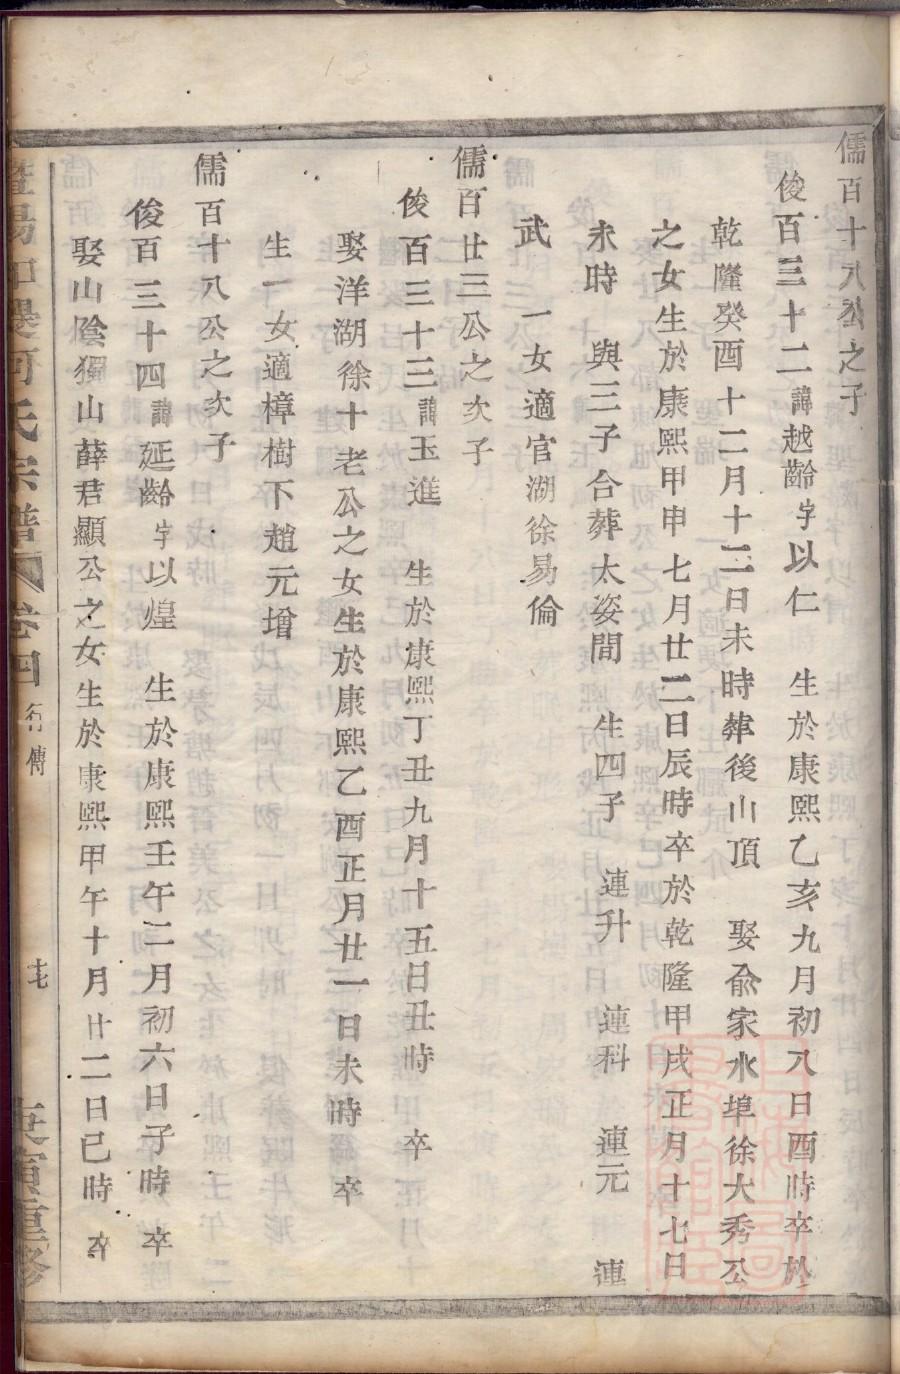 儒百十八公之子
俊百三十二諱越齡字以仁 生於康熙乙亥九月初八日酉時卒於
乾隆癸酉十二月十二日未時葬後山頂 娶兪家水埠徐大秀公
之女生於康熙甲申七月廿二日辰時卒於乾隆甲戌正月十七日
未時 與三子合葬太姿間 生四子 連升 連科 連元 連
武 一女適官湖徐易倫
儒百廿三公之次子
俊百三十三諱玉進 生於康熙丁丑九月十五日丑時 卒
娶洋湖徐十老公之女生於康熙乙酉正月廿一日未時 卒
生一女適樟樹下趙元增
儒百十八公之次子
俊百三十四諱延齡字以煌 生於康熙壬午二月初六日子時 卒
娶山陰獨山薛君顯公之女生於康熙甲午十月廿二日巳時 卒
何氏宗譜 卷四 行傳 十七 庚寅重修